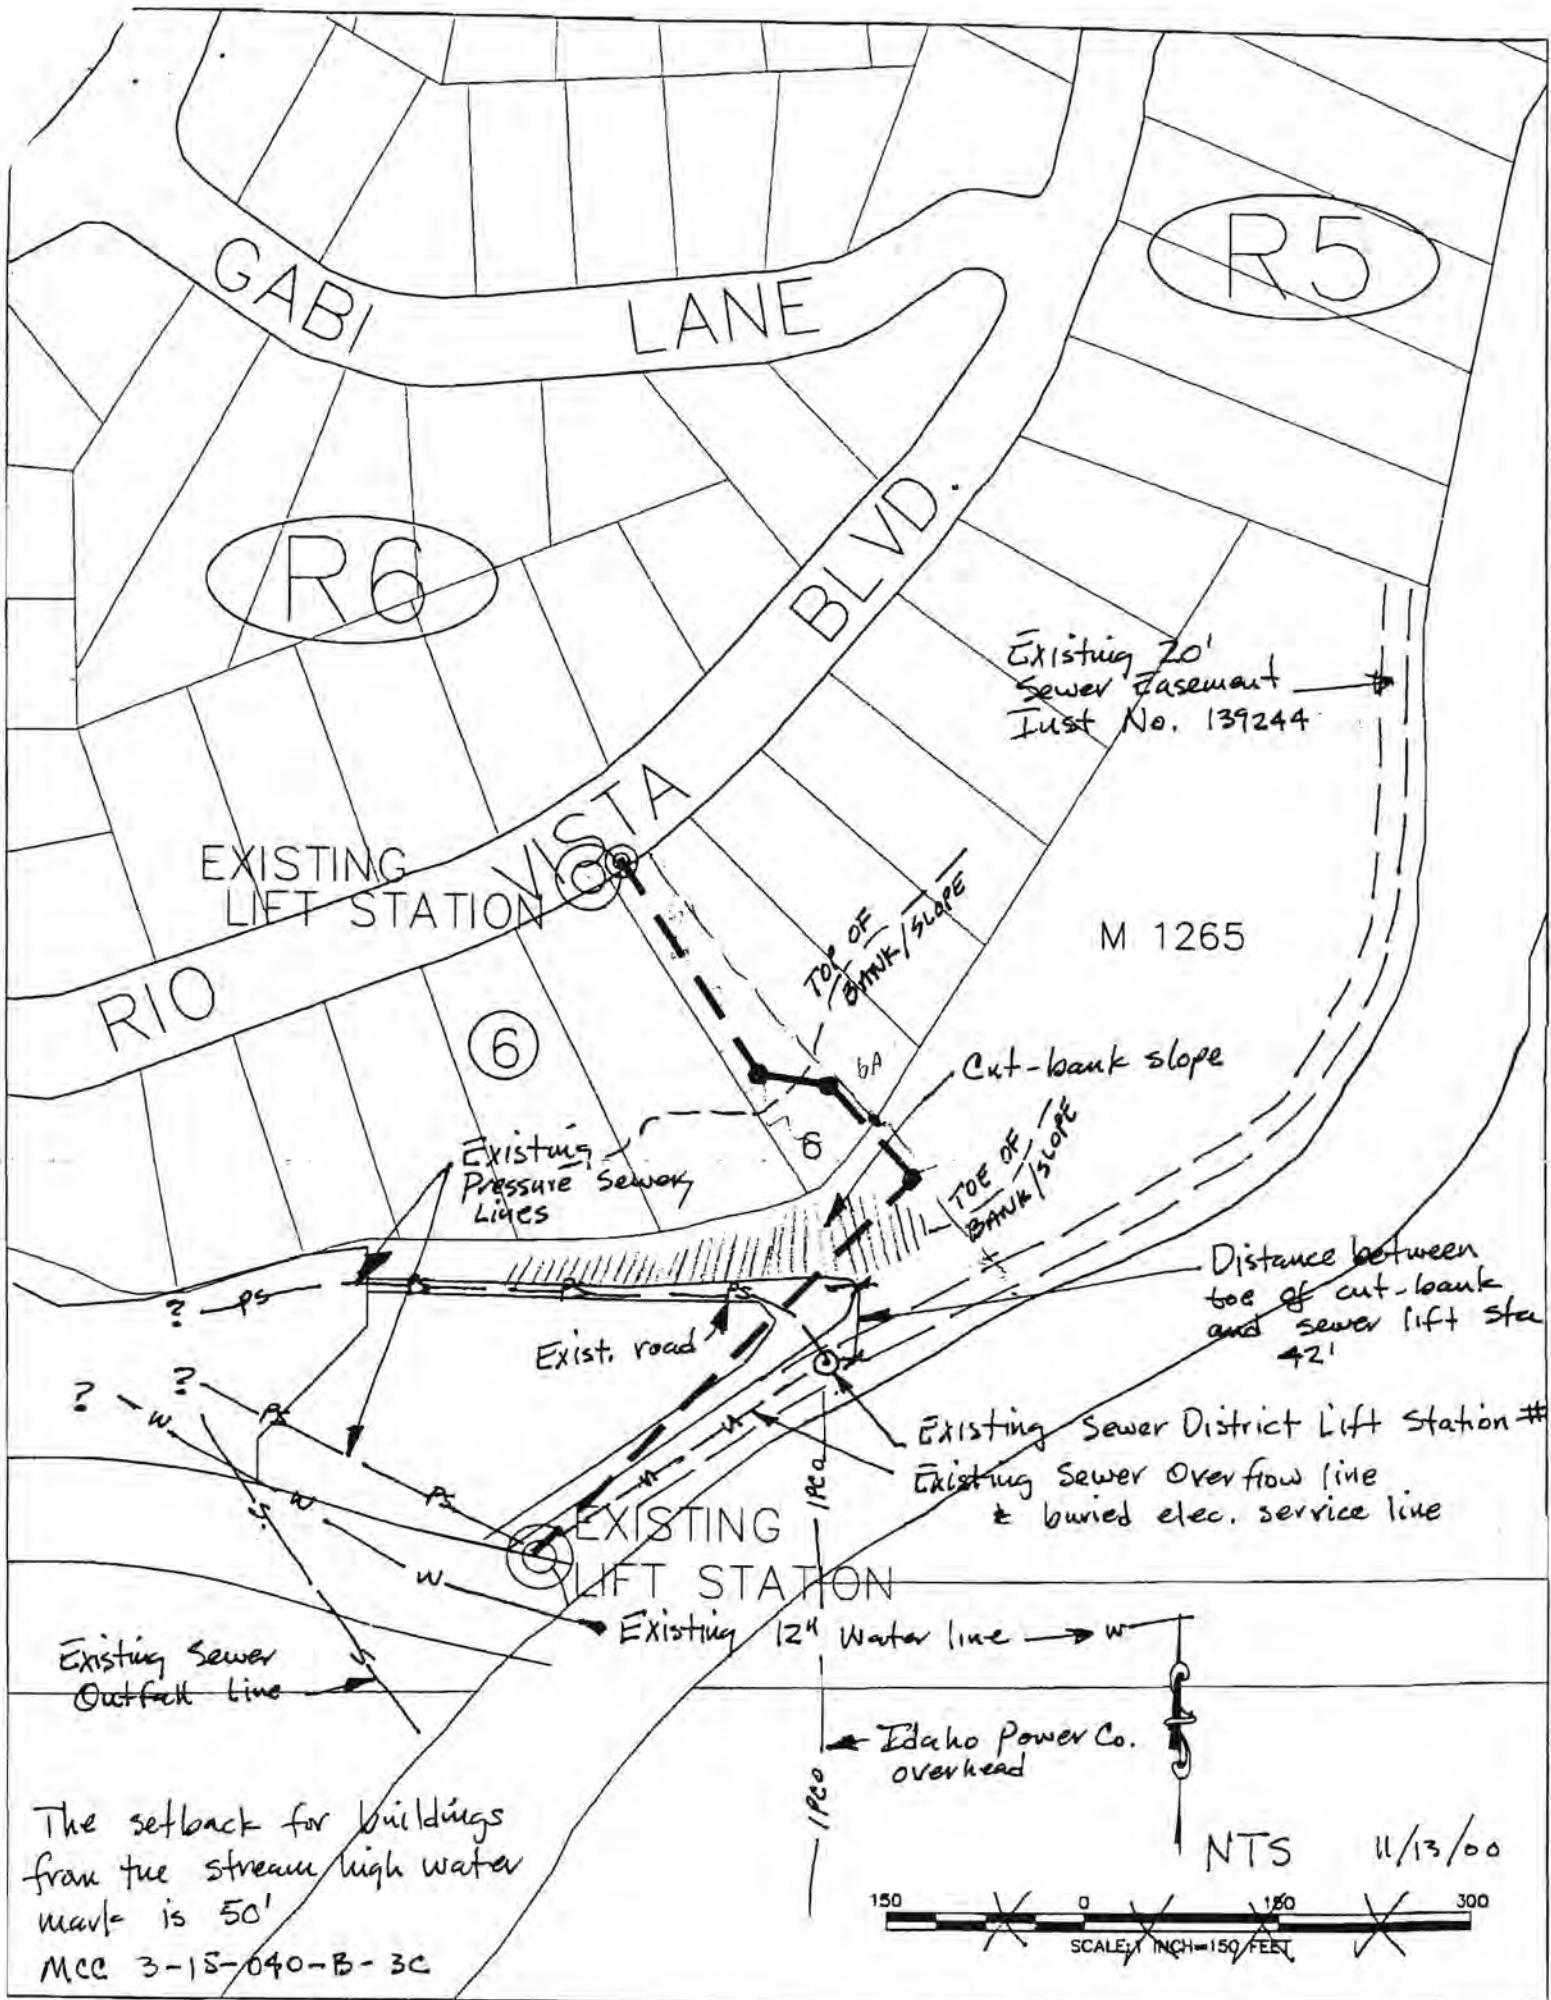 GABI
LANE
R5
R6
BLVD.
VISTA
RIO
Existing 20'
Sewer Easement
Inst No. 139244
EXISTING
LIFT STATION
M 1265
TOP OF
BANK/SLOPE
6
6A
6
Cut-bank slope
TOE OF
BANK/SLOPE
Existing
Pressure Sewer
Lines
Distance between
toe of cut-bank
and sewer lift sta
42'
? PS
PS
PS
PS
Exist. road
?
?
W
PS
PS
W
W
S
S
Existing Sewer District Lift Station #
Existing Sewer Overflow line
& buried elec. service line
IPCo
EXISTING
LIFT STATION
Existing 12" Water line
W
Existing Sewer
Outfall Line
Idaho Power Co.
overhead
IPCo
The setback for buildings
from the stream high water
mark is 50'
MCC 3-15-040-B-3C
NTS 11/13/00
150 0 150 300
SCALE: 1 INCH=150 FEET